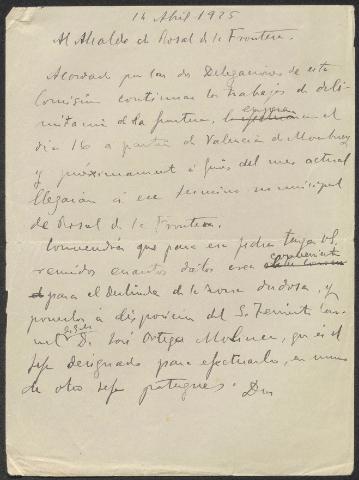 14 Abril 1925
Al Alcalde de Rosal de la Frontera.
Acordado por las dos Delegaciones de esta
Comisión continuar los trabajos de deli-
mitación de la frontera, empezaran el
dia 16 a partir de Valencia de Mombuey
y próximamente á fines del mes actual
llegaran á ese termino municipal
de Rosal de la Frontera.
Convendria que para esa fecha tenga V.S.
reunidos cuantos datos crea conveniente
para el deslinde de la zona dudosa, y
ponerlos á disposicion del S. Teniente Coro-
nel D. José Ortega Molina, que es el
Jefe designado para efectuarlo, en union
de otro Jefe portugues. Dios